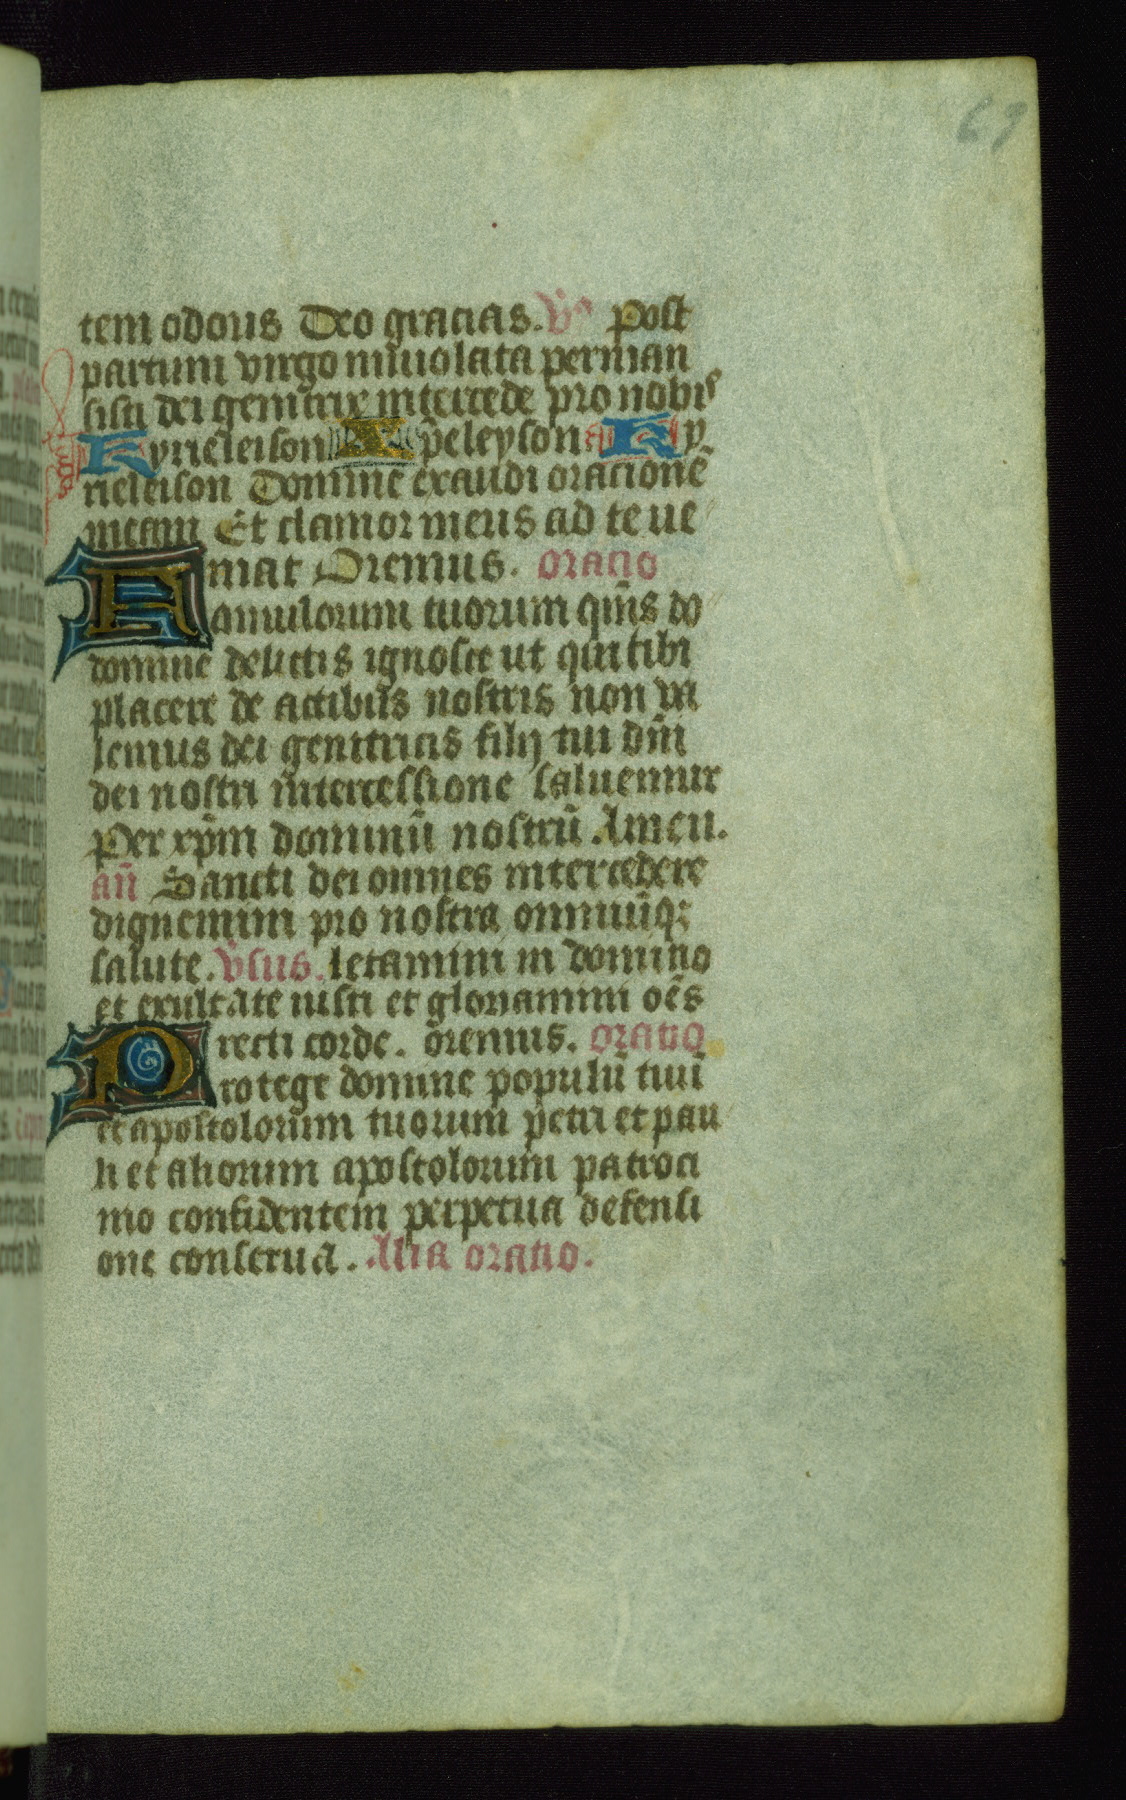 69
tem odoris Deo gracias. V̄s Post
partum virgo inuiolata perman
sisti dei genitrix intercede pro nobis
Kyrieleison Xp̄eleyson Ky
rieleison Domine exaudi orationē
meam Et clamor meus ad te ue
niat Oremus. oratio
Famulorum tuorum qm̄s do
domine delictis ignosce ut qui tibi
placere de actibus nostris non va
lemus dei genitricis filij tui dn̄i
dei nostri intercessione saluemur
Per xp̄m dominū nostrū. Amen.
an̄ Sancti dei omnes intercedere
dignemini pro nostra omniūq;
salute. v̄sus. letamini in domino
et exultate iusti et gloriamini oēs
recti corde. oremus. oratio
Protege domine populū tuū
et apostolorum tuorum petri et pau
li et aliorum apostolorum patroci
nio confidentem perpetua defensi
one conserua. Alia oratio.